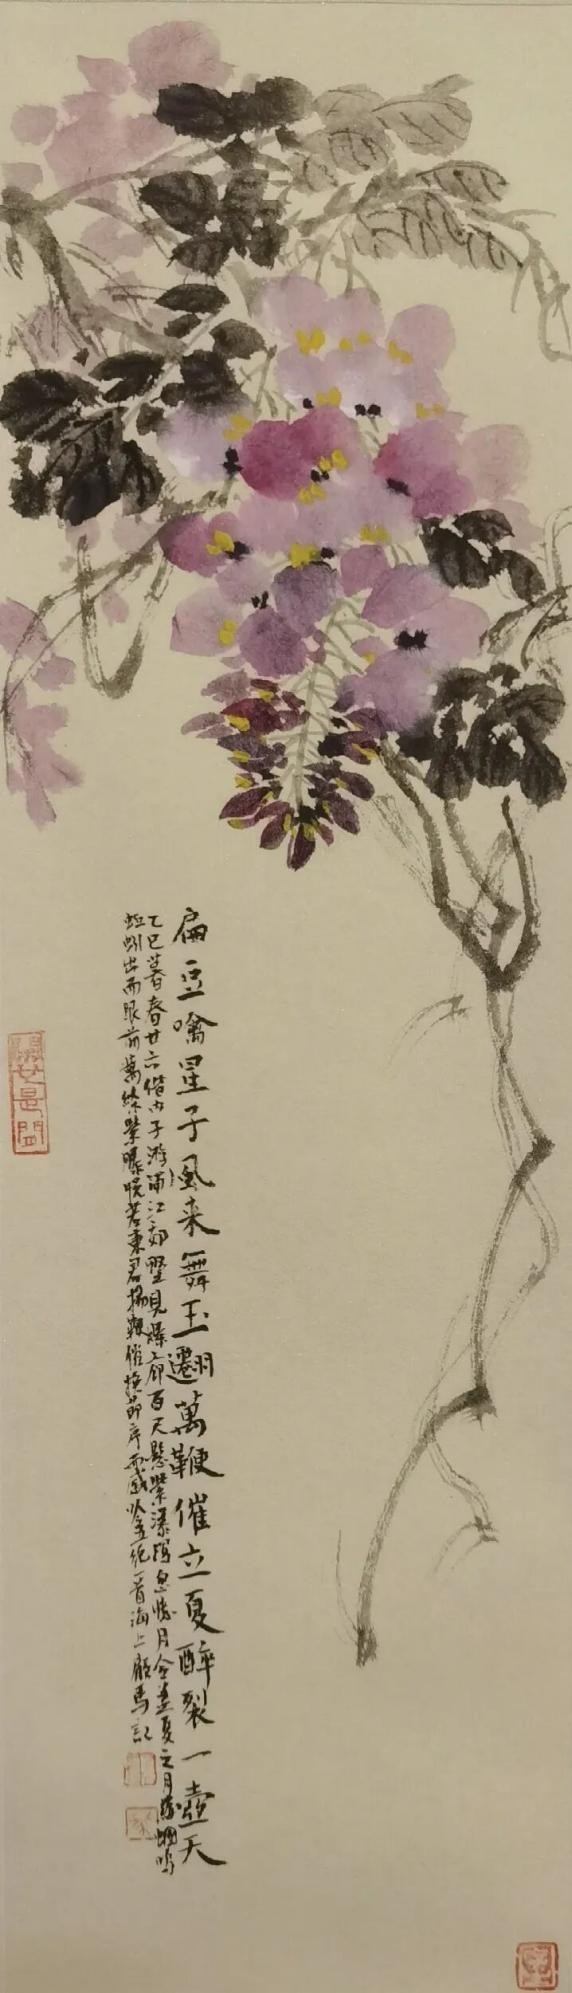 扁豆噙星子風来舞玉翾萬鞭催立夏醉裂一壺天
乙巳暮春廿六偕内子游浦江郊墅見爆廊百尺懸紫瀑揭息憶月令孟夏之月螻蟈鳴
蚯蚓出而眼前萬條紫曝恍若東君揚鞭催換節序而感以金五絶一首海上廠馬記